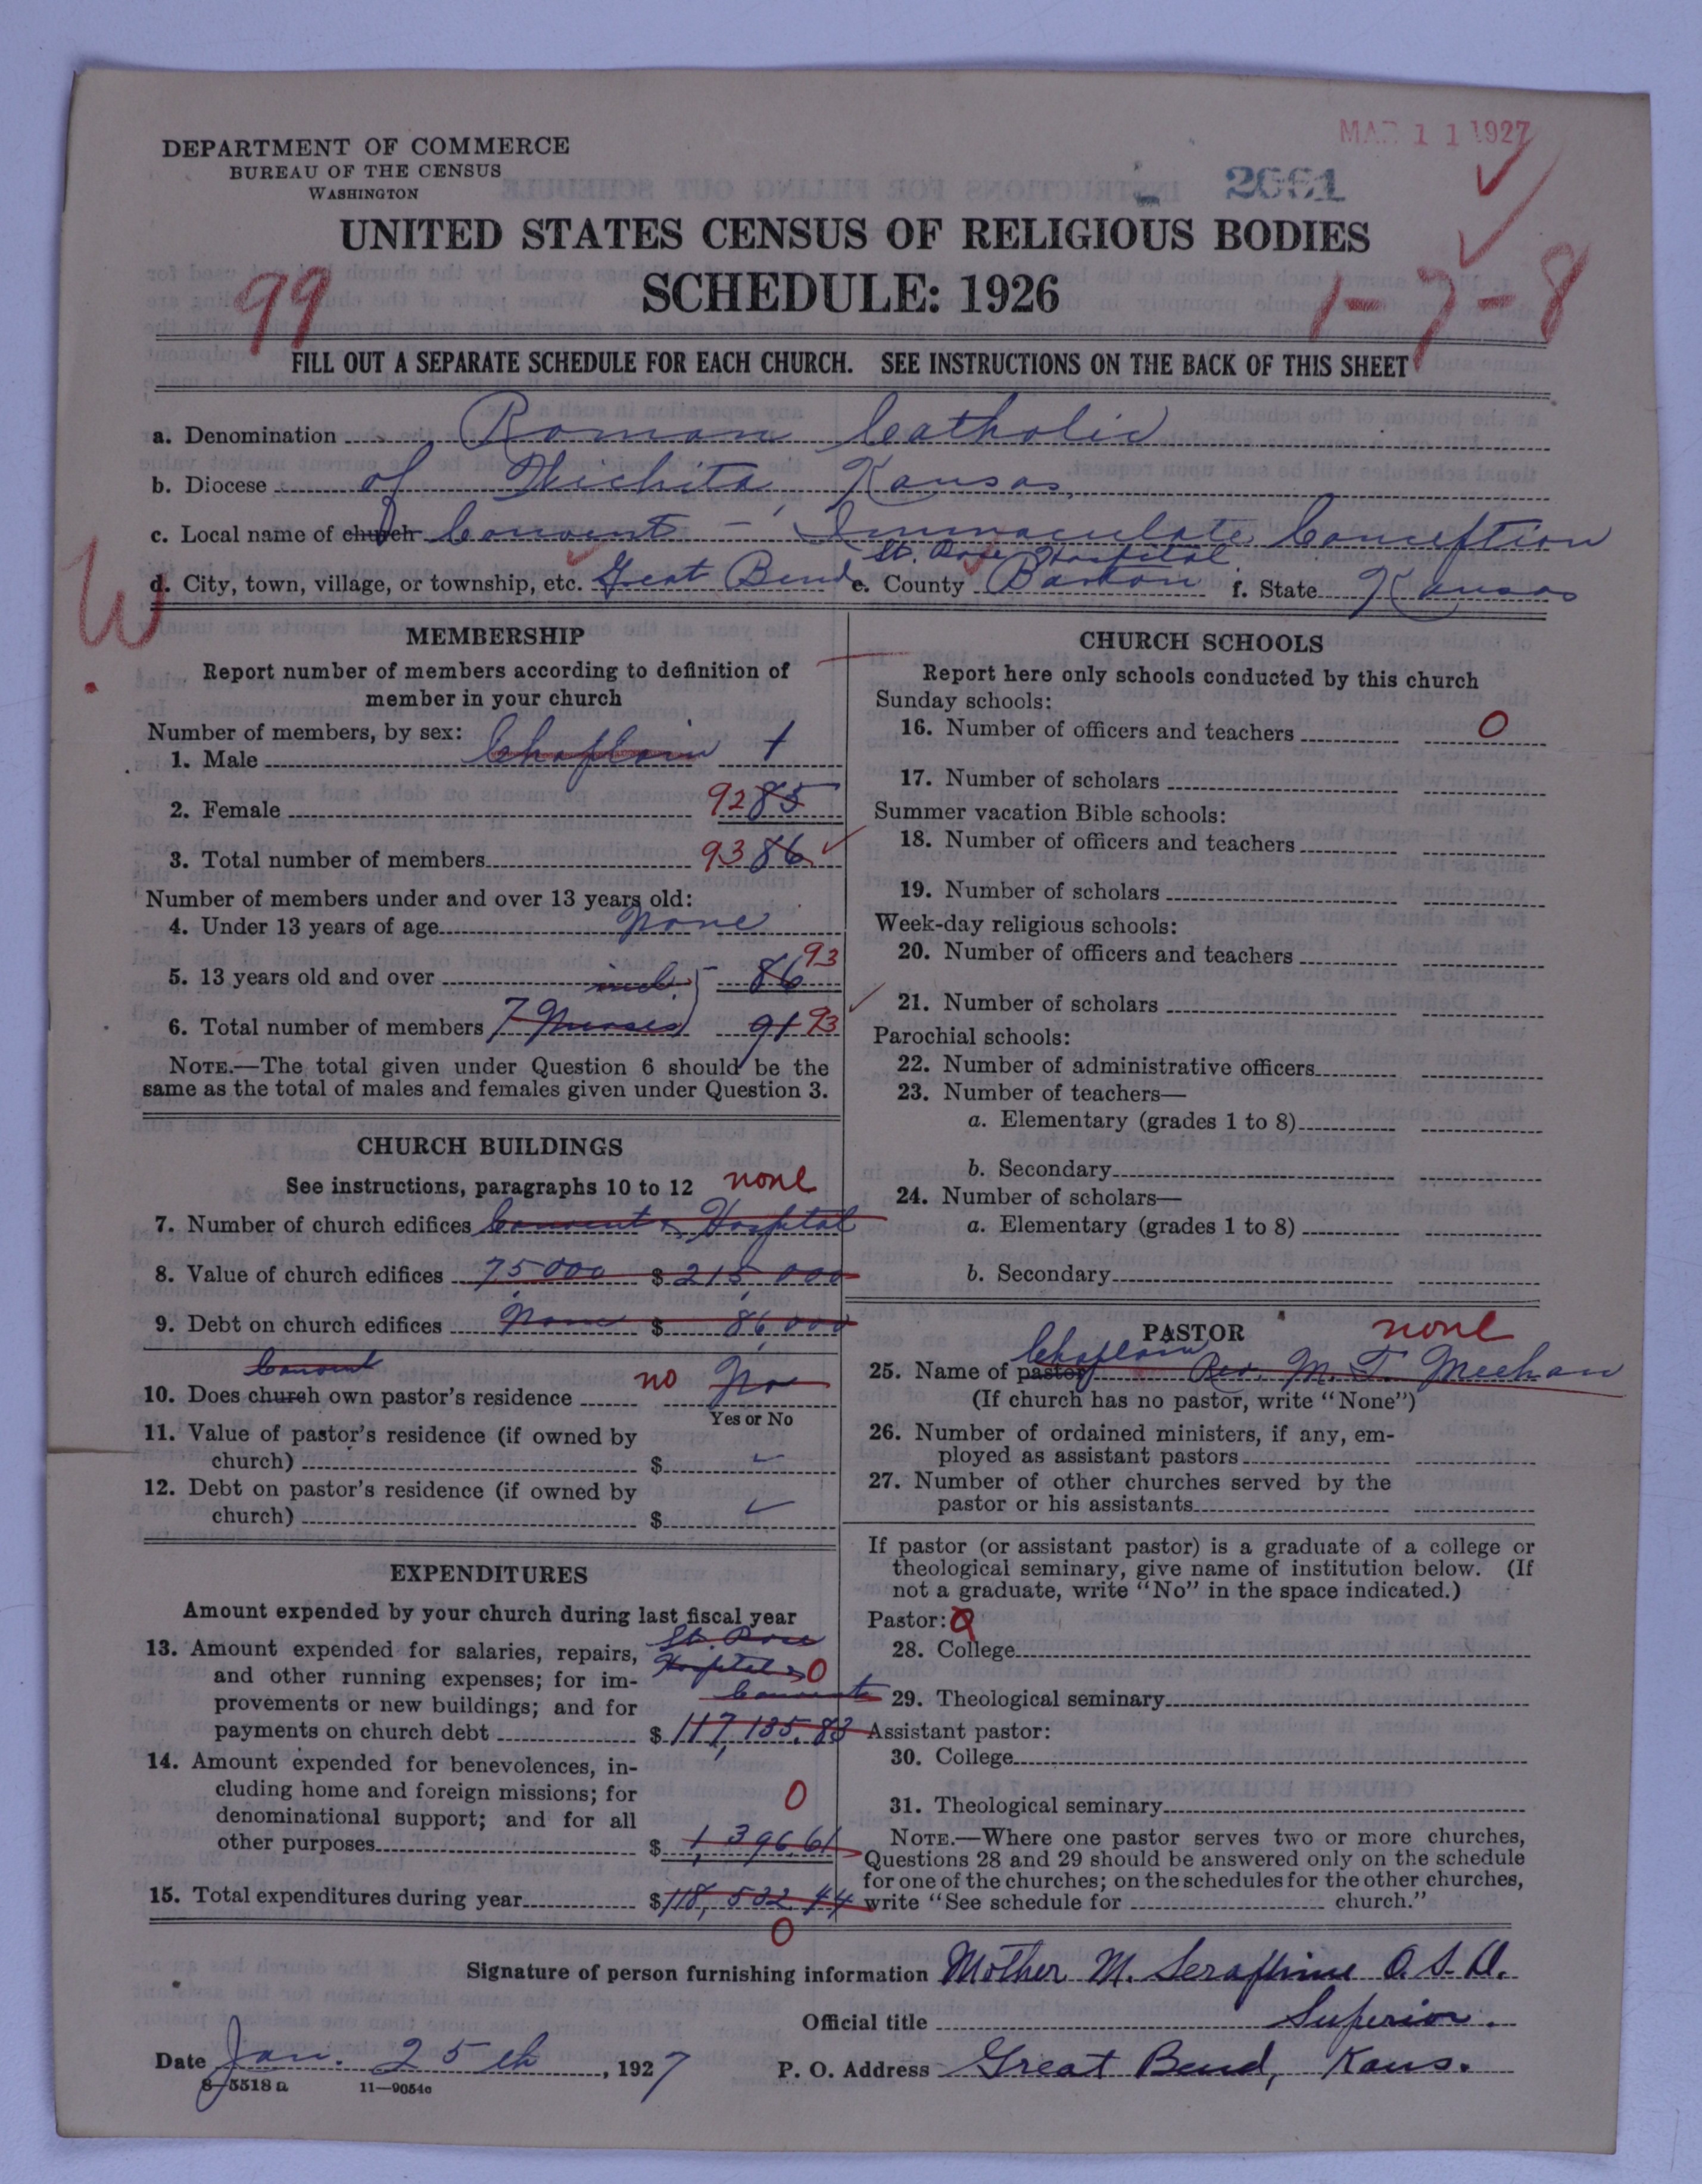 DEPARTMENT OF COMMERCE
BUREAU OF THE CENSUS
WASHINGTON
MAR 11 1927
2661
UNITED STATES CENSUS OF RELIGIOUS BODIES
SCHEDULE: 1926
99
1-7-8
FILL OUT A SEPARATE SCHEDULE FOR EACH CHURCH. SEE INSTRUCTIONS ON THE BACK OF THIS SHEET
a. Denomination Roman Catholic
b. Diocese of Wichita, Kansas,
c. Local name of church Convent - Immaculate Conception
St. Rose Hospital
d. City, town, village, or township, etc. Great Bend e. County Barton f. State Kansas
W
MEMBERSHIP
Report number of members according to definition of
member in your church
Number of members, by sex:
1. Male Chaplain 1
2. Female 92 85
3. Total number of members 93 86
Number of members under and over 13 years old:
4. Under 13 years of age none
5. 13 years old and over incl. 86 93
6. Total number of members 7 Nurses 91 93
NOTE.—The total given under Question 6 should be the
same as the total of males and females given under Question 3.
CHURCH BUILDINGS
See instructions, paragraphs 10 to 12 none
7. Number of church edifices Convent & Hospital
8. Value of church edifices 75,000 $ 215,000
9. Debt on church edifices None $ 86,000
Convent
10. Does church own pastor's residence no No
Yes or No
11. Value of pastor's residence (if owned by
church) $
12. Debt on pastor's residence (if owned by
church) $
EXPENDITURES
Amount expended by your church during last fiscal year
13. Amount expended for salaries, repairs, St. Rose
and other running expenses; for im- Hospital & 0
provements or new buildings; and for Convent
payments on church debt $ 117,135.83
14. Amount expended for benevolences, in-
cluding home and foreign missions; for 0
denominational support; and for all
other purposes $ 1,396.61
15. Total expenditures during year $ 118,532.44
0
CHURCH SCHOOLS
Report here only schools conducted by this church
Sunday schools:
16. Number of officers and teachers 0
17. Number of scholars
Summer vacation Bible schools:
18. Number of officers and teachers
19. Number of scholars
Week-day religious schools:
20. Number of officers and teachers
21. Number of scholars
Parochial schools:
22. Number of administrative officers
23. Number of teachers—
a. Elementary (grades 1 to 8)
b. Secondary
24. Number of scholars—
a. Elementary (grades 1 to 8)
b. Secondary
PASTOR none
Chaplain
25. Name of pastor Rev. M. T. Meehan
(If church has no pastor, write "None")
26. Number of ordained ministers, if any, em-
ployed as assistant pastors
27. Number of other churches served by the
pastor or his assistants
If pastor (or assistant pastor) is a graduate of a college or
theological seminary, give name of institution below. (If
not a graduate, write "No" in the space indicated.)
Pastor:
28. College
29. Theological seminary
Assistant pastor:
30. College
31. Theological seminary
NOTE.—Where one pastor serves two or more churches,
Questions 28 and 29 should be answered only on the schedule
for one of the churches; on the schedules for the other churches,
write "See schedule for church."
Signature of person furnishing information Mother M. Seraphine O.S.D.
Official title Superior.
Date Jan. 25th, 1927 P. O. Address Great Bend, Kans.
8-5518a 11—9054c